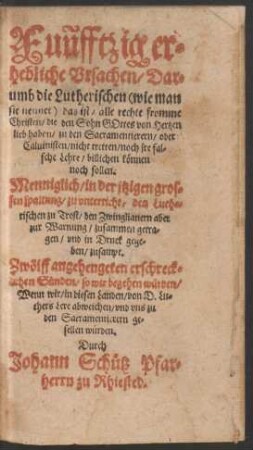 Fuñfftzig er-
hebliche Vrsachen / Dar-
umb die Lutherischen (wie man
sie nennet) das ist / alle rechte fromme
Christen / die den Sohn GOttes von Hertzen
lieb haben / zu den Sacramentierern / oder
Caluinisten / nicht tretten / noch jre fal-
sche Lehre / billichen können
noch sollen.
Menniglich / in der jtzigen gros-
sen spaltung / zu vnterricht / den Luthe-
rischen zu Trost / den Zwinglianern aber
zur Warnung / zusammen getra-
gen / vnd in Druck gege-
ben / zusampt.
Zwölff angehengeten erschreck-
lichen Sünden / so wir begehen würden /
Wenn wir / in diesen Landen / von D. Lu-
thers Lere abweichen / vnd vns zu
den Sacramentirern ge-
sellen würden.
Durch
Johann Schütz Pfar-
herrn zu Rhiested.